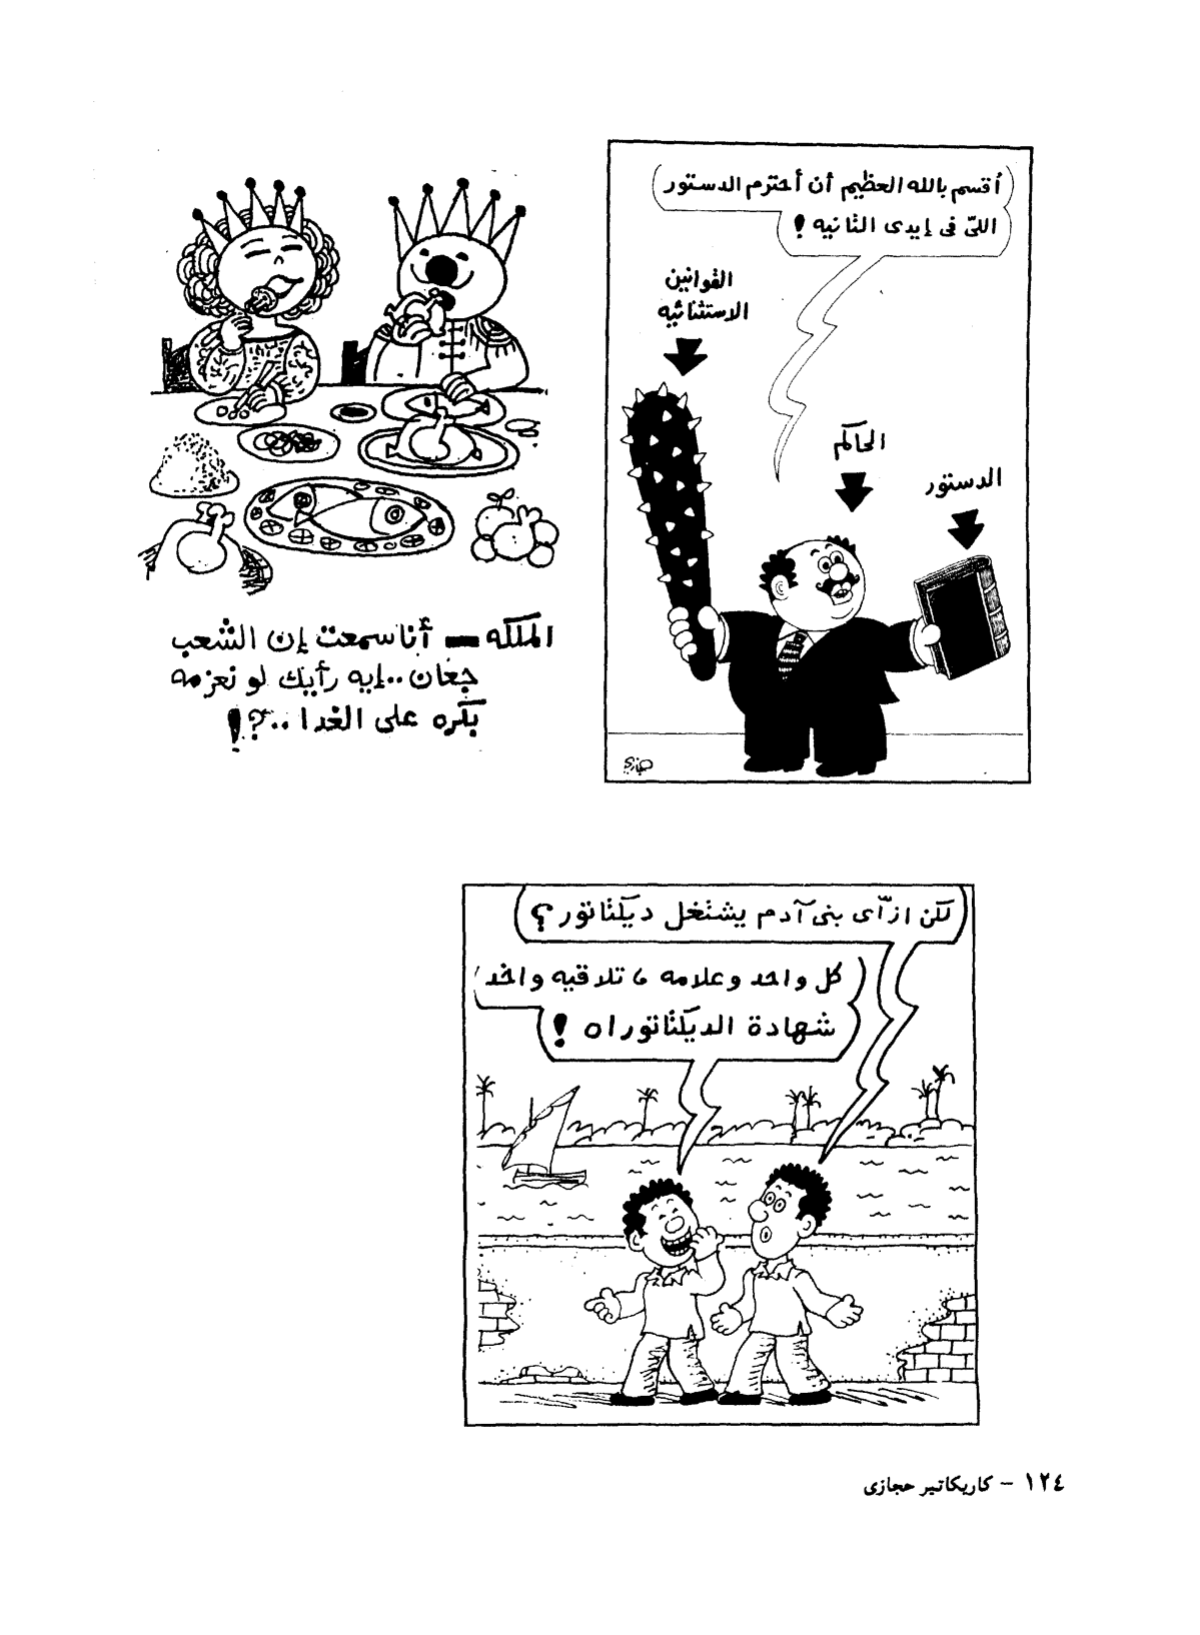 أقسم بالله العظيم أن أحترم الدستور
اللى فى إيدى الثانيه !
القوانين
الاستثنائيه
الحاكم
الدستور
حجازي
الملكه — أنا سمعت إن الشعب
جعان .. إيه رأيك لو نعزمه
بكره على الغدا ..؟!
لكن ازّاى بنى آدم يشتغل ديكتاتور ؟
كل واحد وعلامه ، تلاقيه واخد
شهادة الديكتاتوراه !
١٢٤ – كاريكاتير حجازى